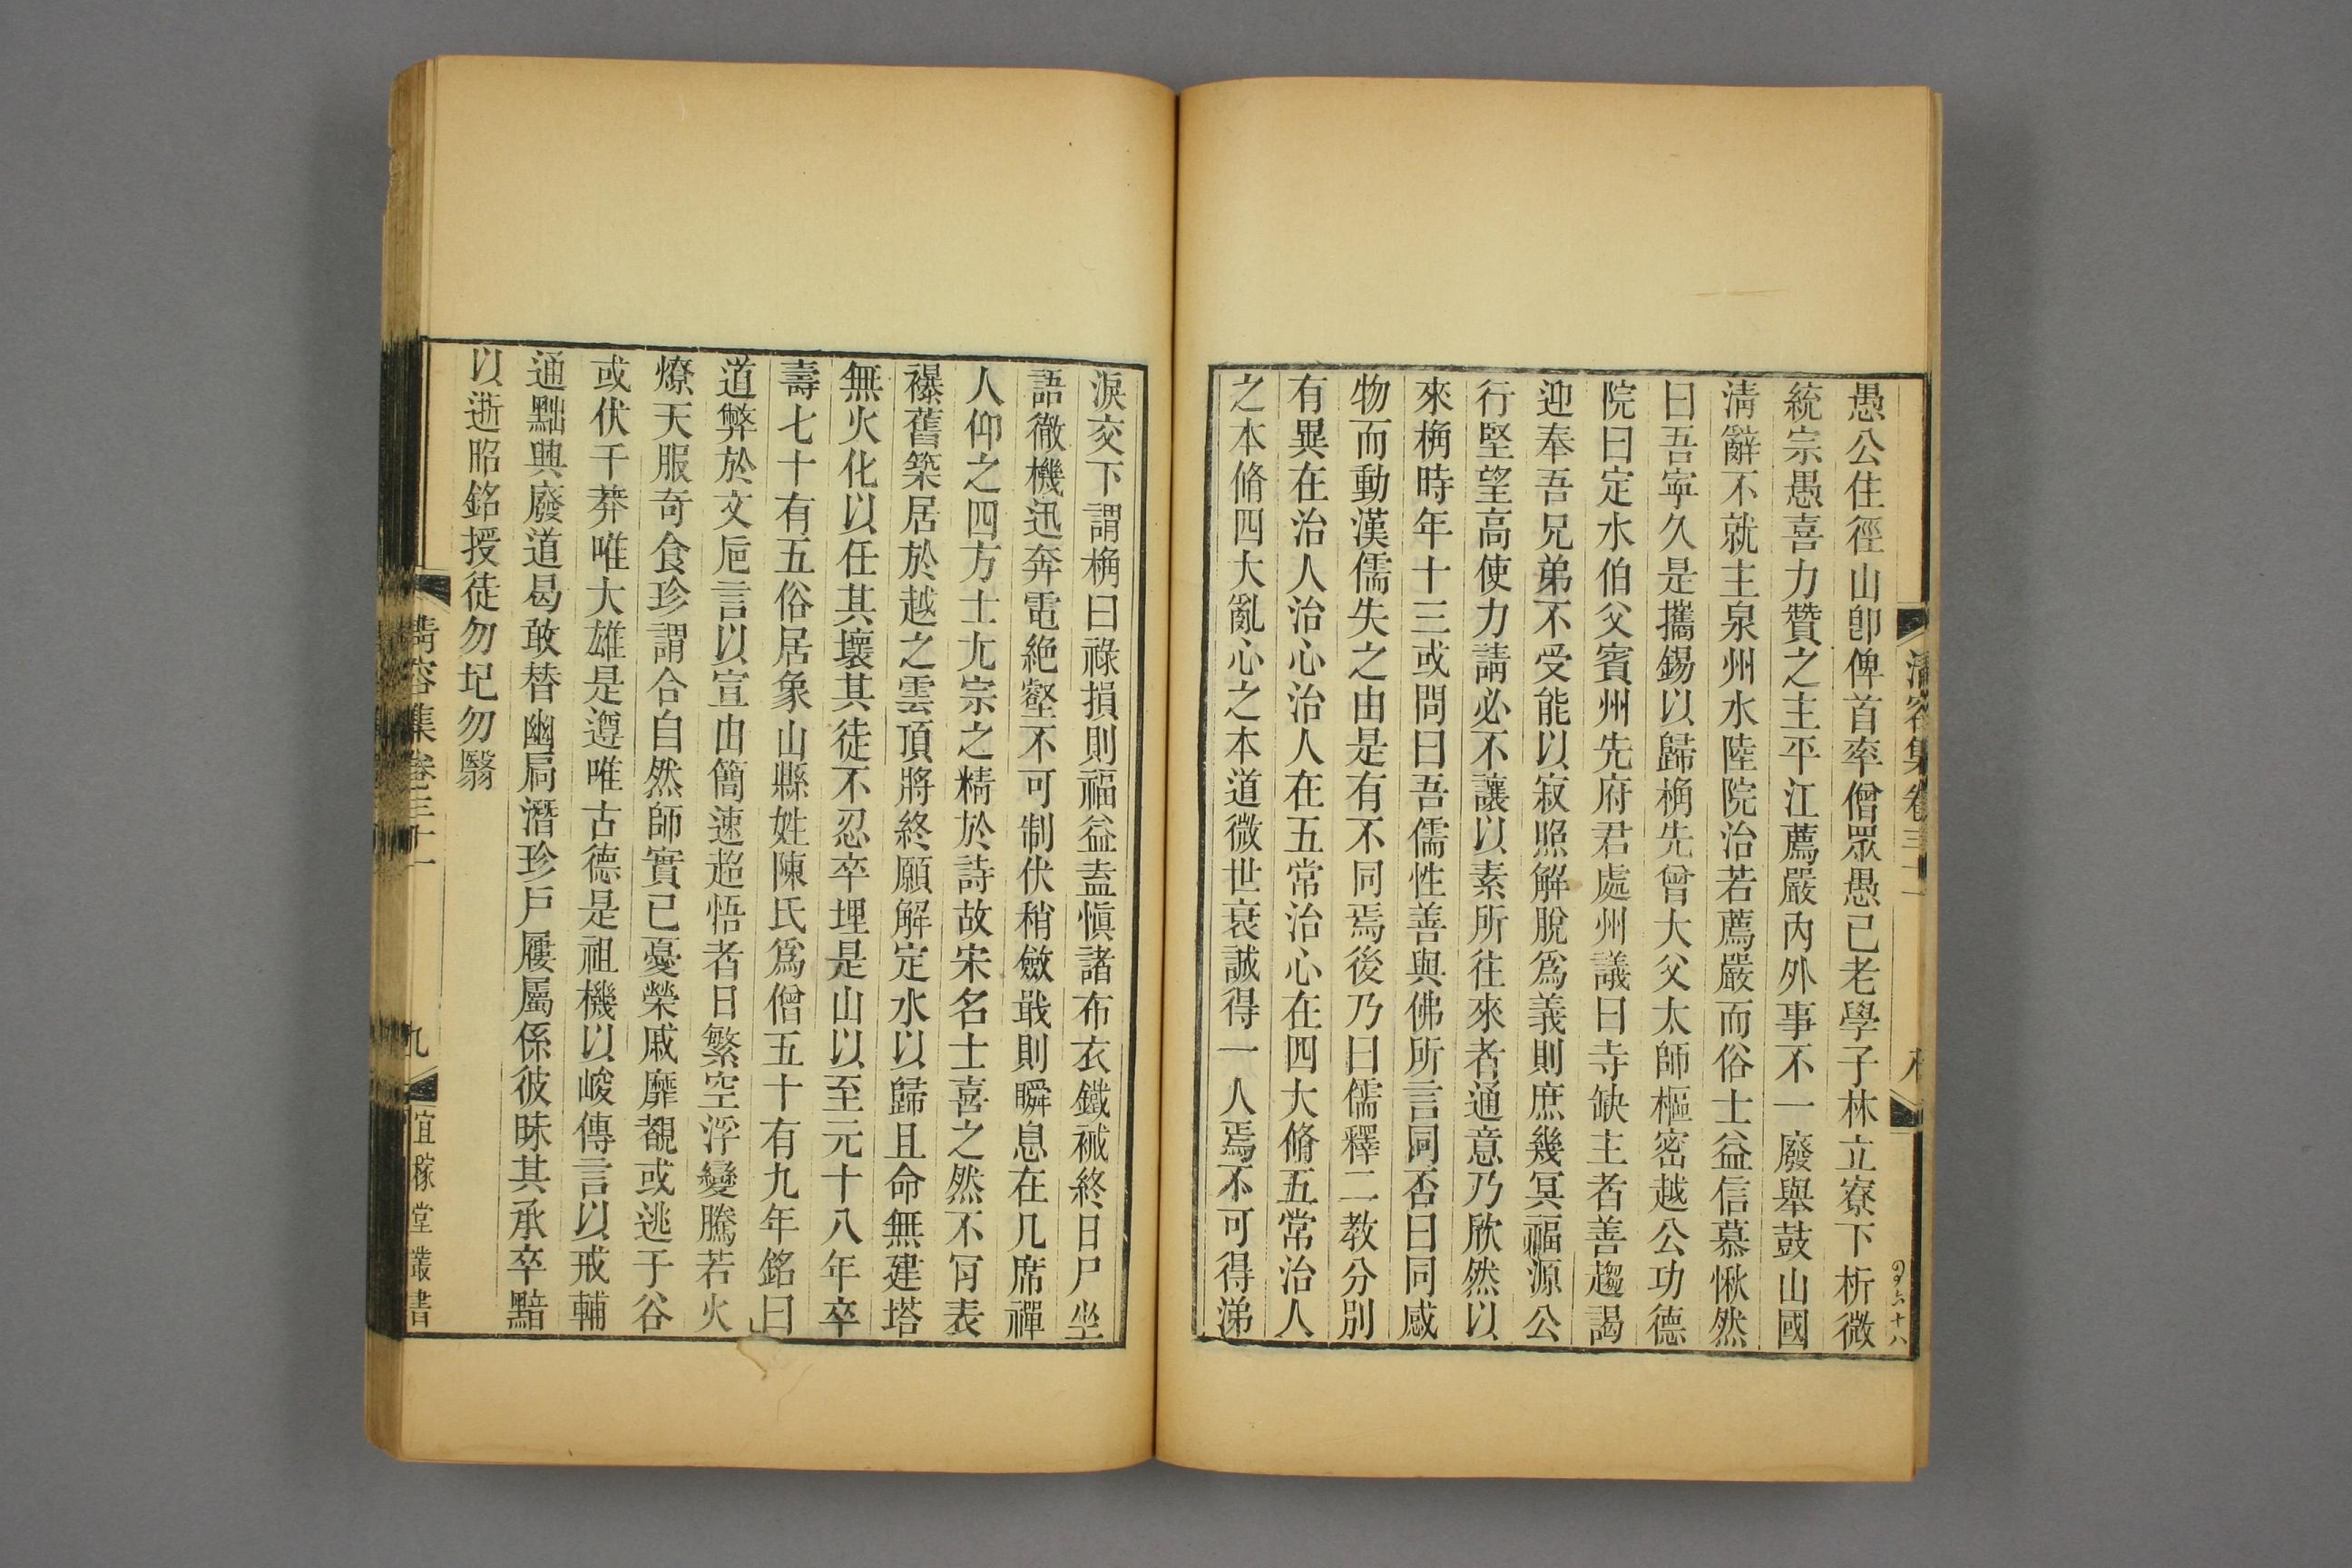 愚公住徑山卽俾首率僧眾愚已老學子林立寮下析微
統宗愚喜力贊之主平江薦嚴內外事不一廢舉鼓山國
淸辭不就主泉州水陸院治若薦嚴而俗士益信慕愀然
曰吾寜久是攜錫以歸桷先曾大父太師樞密越公功德
院曰定水伯父賓州先府君處州議曰寺缺主者善趨謁
迎奉吾兄弟不受能以寂照解脫爲義則庶幾冥福源公
行堅望高使力請必不讓以素所往來者通意乃欣然以
來桷時年十三或問曰吾儒性善與佛所言同否曰同感
物而動漢儒失之由是有不同焉後乃曰儒釋二教分別
有異在治人治心治人在五常治心在四大脩五常治人
之本脩四大亂心之本道微世衰誠得一人焉不可得涕
淚交下謂桷曰祿損則福益盍愼諸布衣鐵裓終日尸坐
語徹機迅奔電絶壑不可制伏稍斂戢則瞬息在几席禪
人仰之四方士尢宗之精於詩故宋名士喜之然不肎表
襮舊築居於越之雲頂將終願解定水以歸且命無建塔
無火化以任其壞其徒不忍卒埋是山以至元十八年卒
壽七十有五俗居象山縣姓陳氏爲僧五十有九年銘曰
道弊於文巵言以宣由簡速超悟者日繁空浮變騰若火
燎天服奇食珍謂合自然師實已憂榮戚靡覩或逃于谷
或伏于莽唯大雄是遵唯古德是祖機以峻傳言以戒輔
通黜興廢道曷敢替幽扃潛珍戶屨屬係彼昧其承卒黯
以逝昭銘授徒勿圮勿翳
淸容集卷三十一
九
宜稼堂叢書